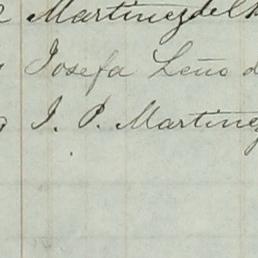 Martinez del
Josefa Leño d
J. P. Martinez